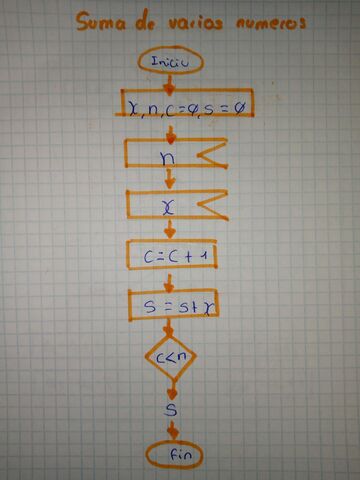 Suma de varios numeros
Inicio
x, n, c=0, s=0
n
x
c=c+1
s=s+x
c<n
s
fin